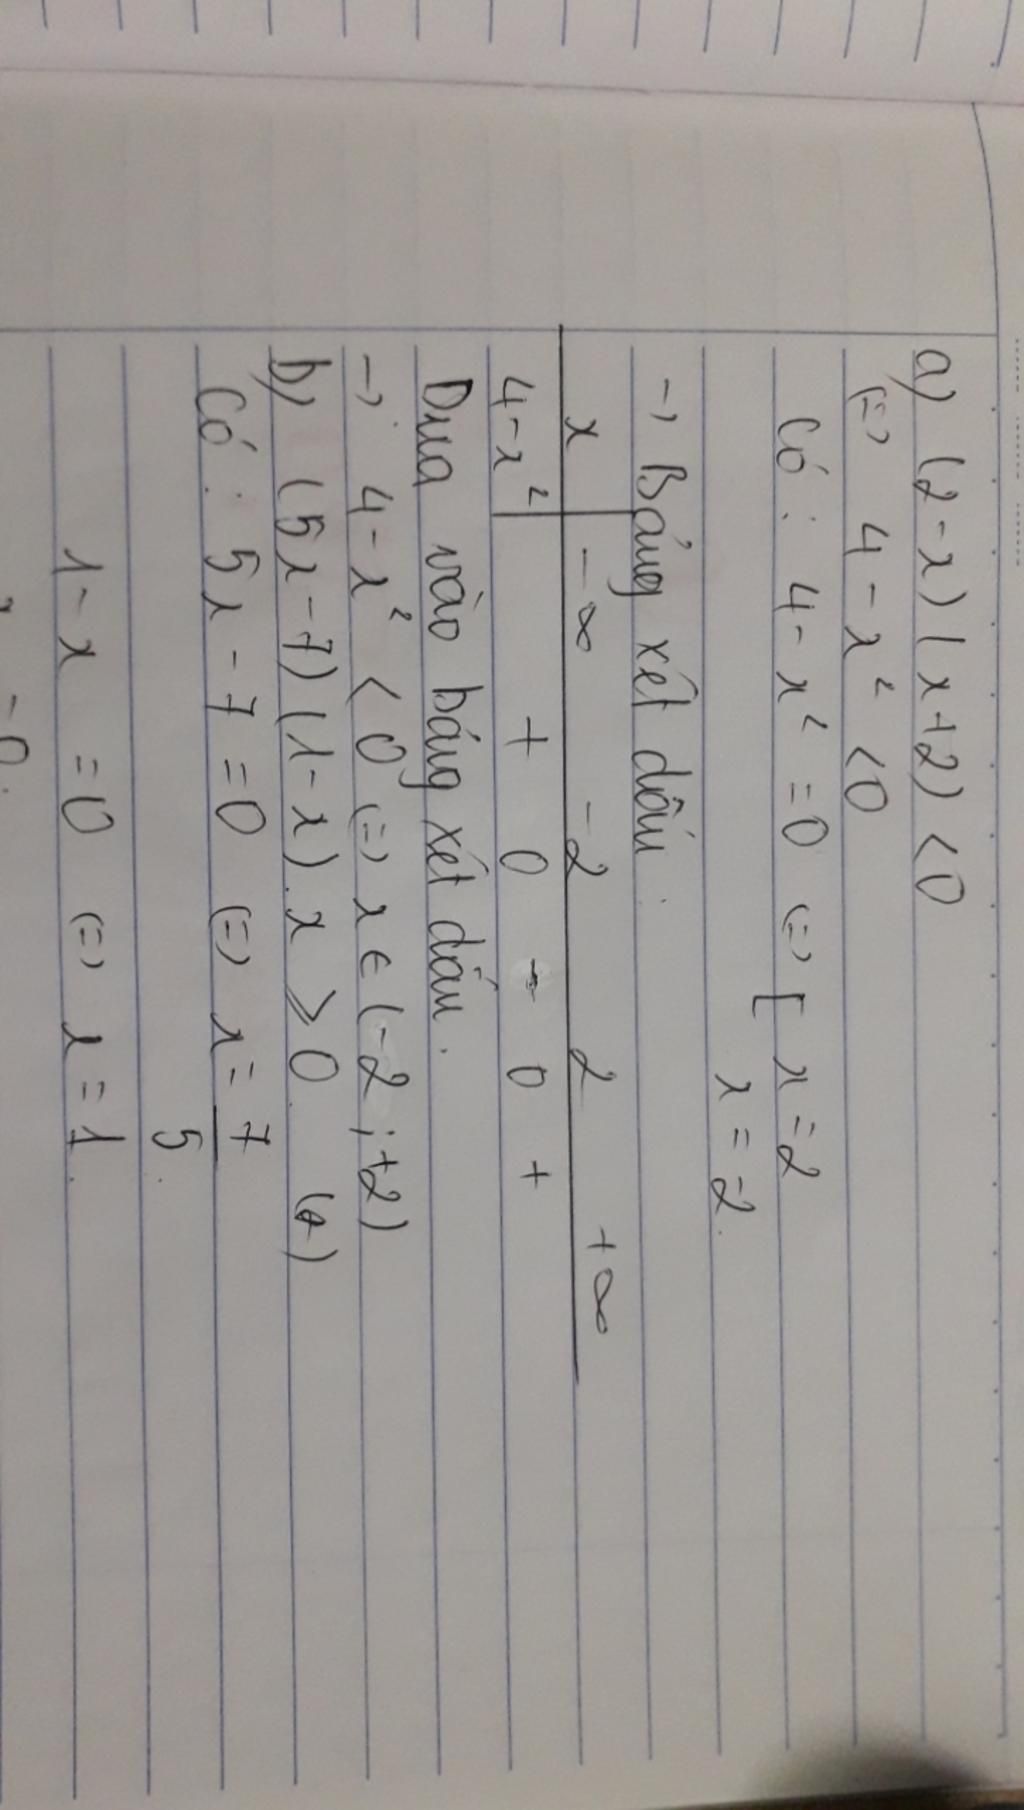 a) (2-x)(x+2) < 0
(=) 4 - x² < 0
Có : 4 - x² = 0 (=) [ x = 2
x = -2.
→ Bảng xét dấu.
x -∞ -2 2 +∞
4-x² + 0 - 0 +
Dưa vào bảng xét dấu.
→ 4 - x² < 0 (=) x ∈ (-2 ; +2)
b) (5x - 7)(1 - x). x ⩾ 0. (*)
Có : 5x - 7 = 0 (=) x = 7/5.
1 - x = 0 (=) x = 1.
= 0